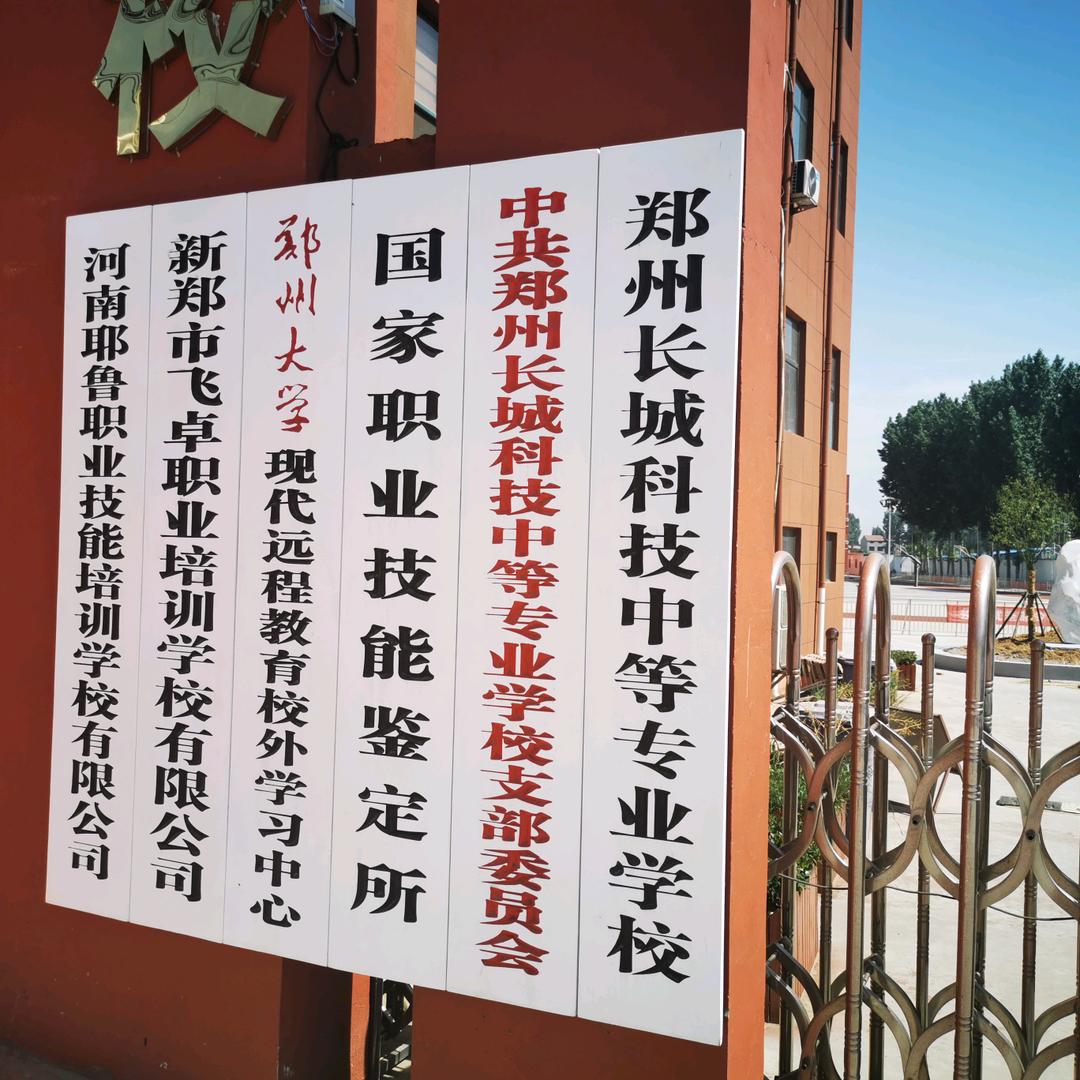 校
郑州长城科技中等专业学校
中共郑州长城科技中等专业学校支部委员会
国家职业技能鉴定所
郑州大学现代远程教育校外学习中心
新郑市飞卓职业培训学校有限公司
河南耶鲁职业技能培训学校有限公司